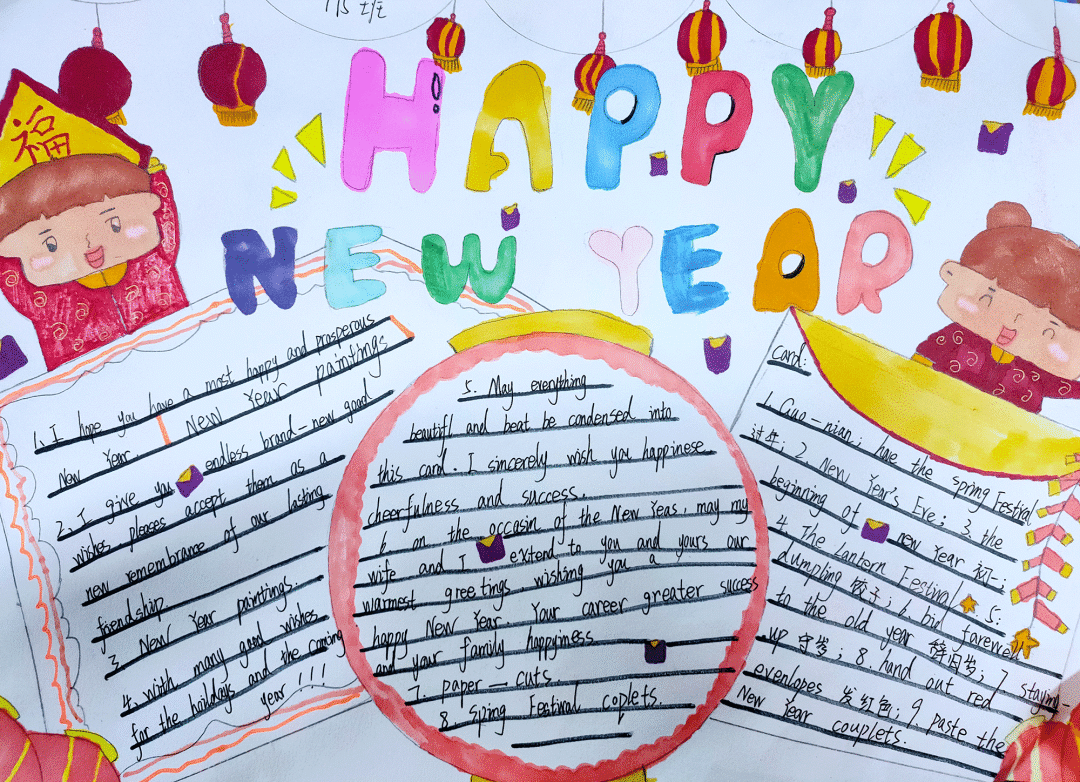 115班
福
HAPPY
NEW YEAR
1. I hope you have a most happy and prosperous
New Year.
New Year paintings
2. I give you endless brand-new good
wishes. pleases accept them as a
new remembrance of our lasting
friendship.
3. New Year paintings.
4. with many good wishes
for the hoildays and the coming
year!!!
5. May everything
beautifl and beat be condensed into
this card. I sincerely wish you happinese
cheerfulness and success.
6. on the occasin of the New Yeas, may my
wife and I extend to you and yours our
warmest greetings. wishing you a
happy New Year. Your career greater success
and your family happyiness
7. paper—cuts.
8. Spring Festival coplets.
Card:
1. Guo-nian; have the spring Festival
过年; 2 New Year's Eve; 3. the
beginning of new year 初一;
4. The Lantern Festival; 5:
dumpling 饺子; 6. bid farewell
to the old year 辞旧岁; 7 staying-
up 守岁; 8. hand out red
evenlopes 发红包; 9. paste the
New Year couplets.